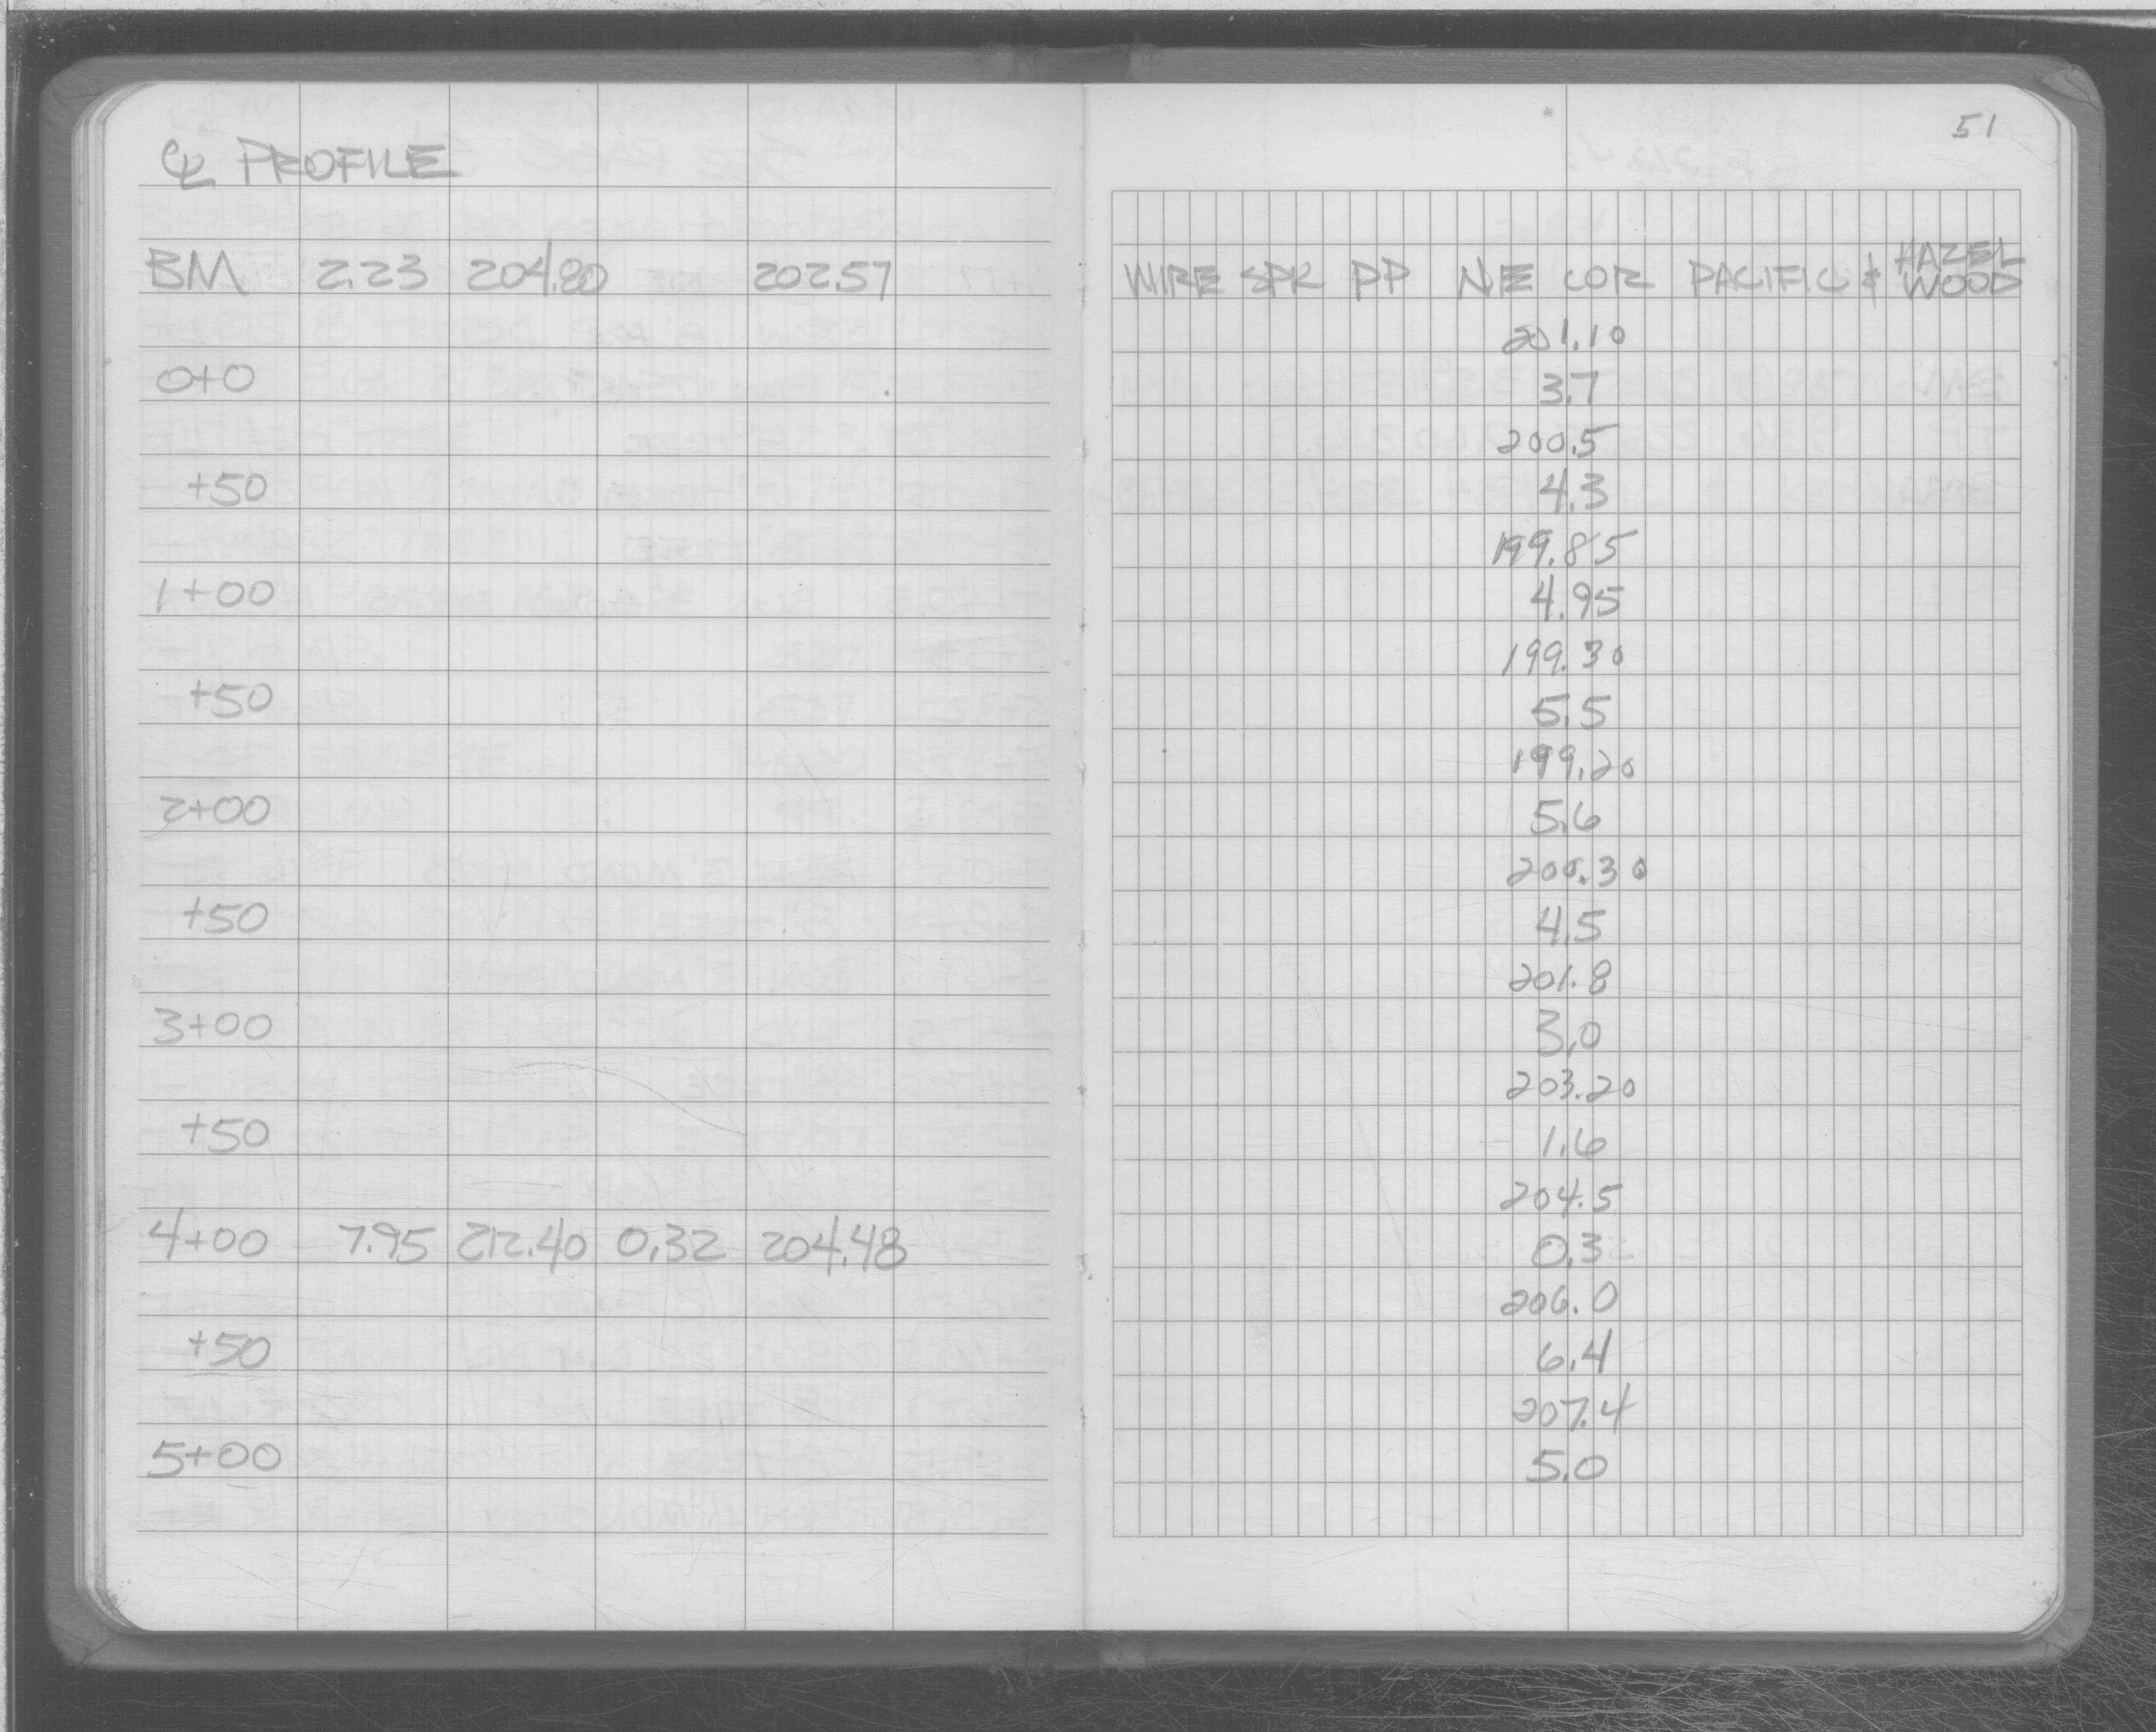 51
℄ PROFILE
BM 2.23 204.80 202.57 WIRE SPK PP NE COR PACIFIC & HAZEL WOOD
201.10
0+0 3.7
200.5
+50 4.3
199.85
1+00 4.95
199.30
+50 5.5
199.20
2+00 5.6
200.30
+50 4.5
201.8
3+00 3.0
203.20
+50 1.6
204.5
4+00 7.95 212.40 0.32 204.48 0.3
206.0
+50 6.4
207.4
5+00 5.0